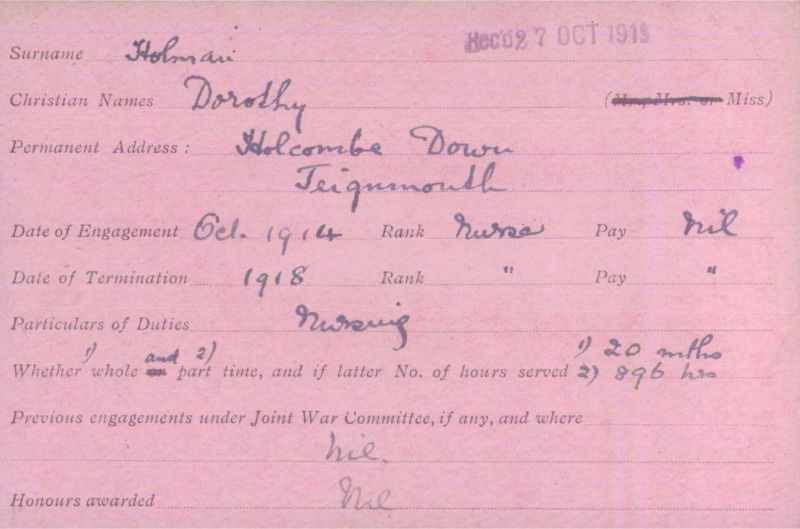 Rec'd 27 OCT 1919
Surname Holman
Christian Names Dorothy (Mr., Mrs. or Miss)
Permanent Address: Holcombe Down
Teignmouth
Date of Engagement Oct. 1914 Rank Nurse Pay Nil
Date of Termination 1918 Rank " Pay "
Particulars of Duties Nursing
1) and 2) 1) 20 mths
Whether whole or part time, and if latter No. of hours served 2) 896 hrs
Previous engagements under Joint War Committee, if any, and where
Nil.
Honours awarded Nil